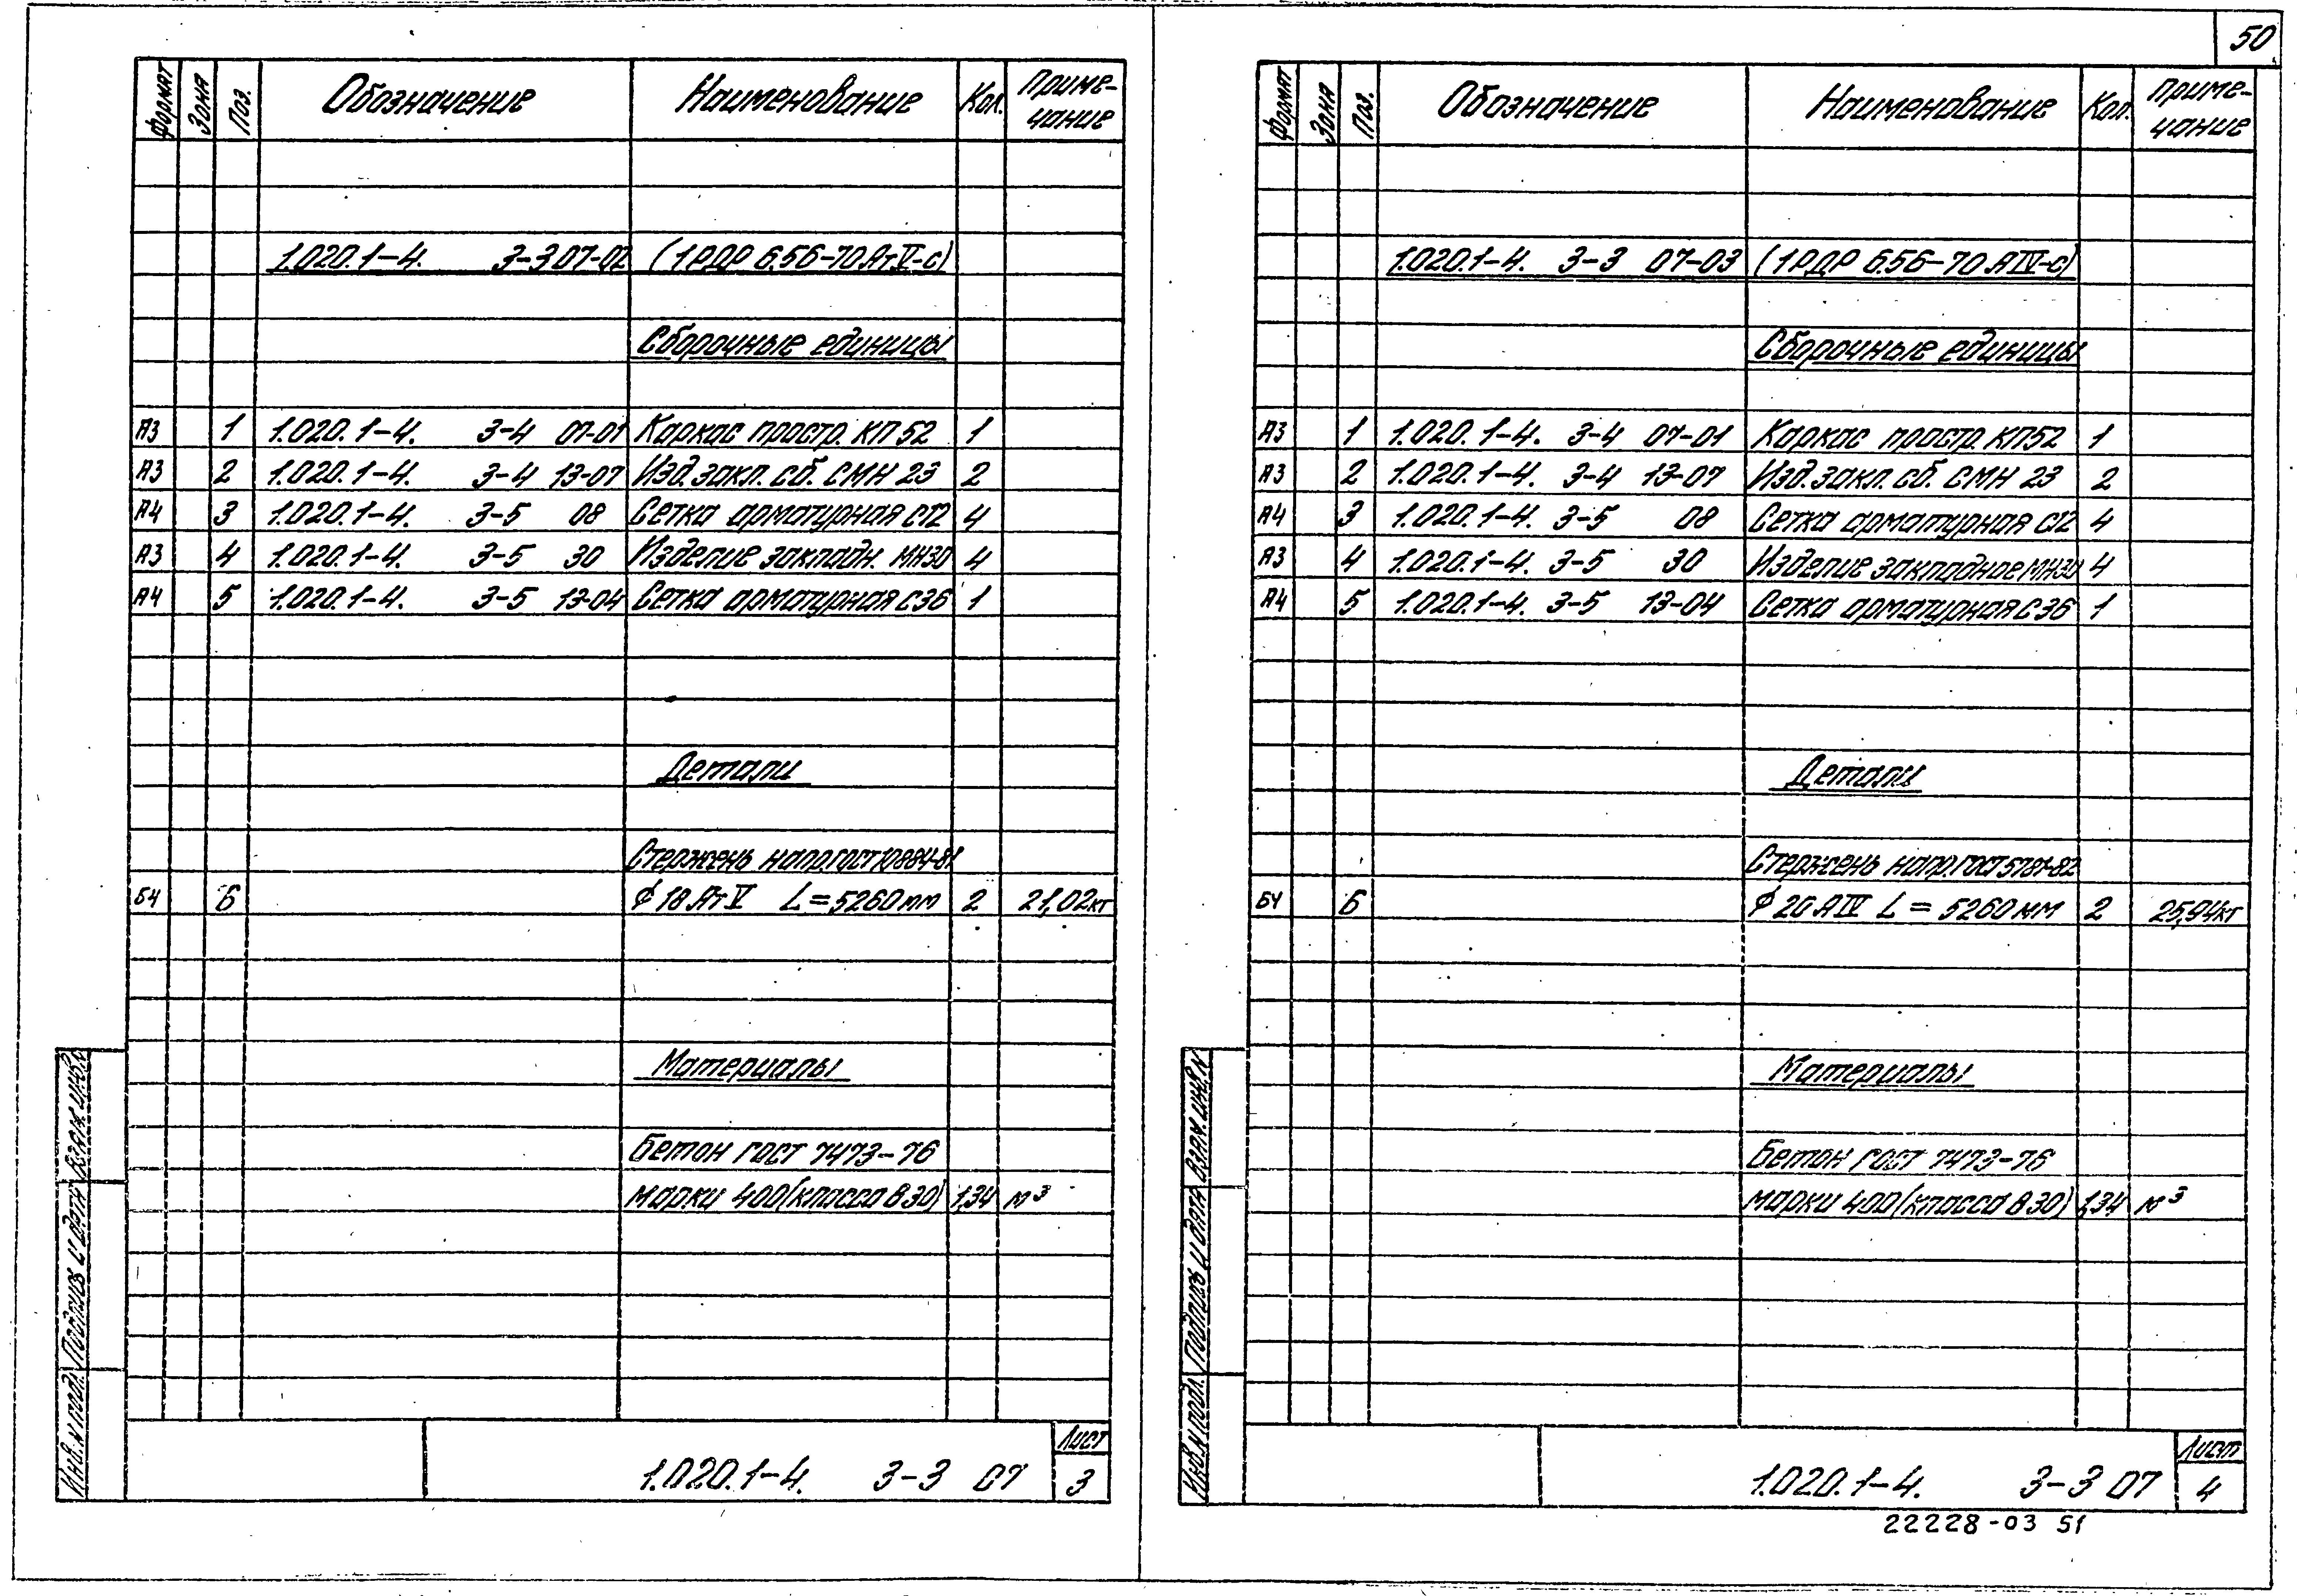 50
Формат Зона Поз. Обозначение Наименование Кол. Приме-
чание
1.020.1-4. 3-3 07-02 (1РДР 6.56-70 АтV-с)
Сборочные единицы
А3 1 1.020.1-4. 3-4 07-01 Каркас простр. КП 52 1
А3 2 1.020.1-4. 3-4 13-07 Изд. закл. сб. СМН 23 2
А4 3 1.020.1-4. 3-5 08 Сетка арматурная С12 4
А3 4 1.020.1-4. 3-5 30 Изделие закладн. МН30 4
А4 5 1.020.1-4. 3-5 13-04 Сетка арматурная С36 1
Детали
Стержень напр. ГОСТ 10884-81
Б4 6 ϕ 18 АтV L = 5260 мм 2 21,02 кг
Материалы
Бетон ГОСТ 7473-76
марки 400 (класса В30) 1,34 м³
Инв. N подл. Подпись и дата Взам. инв. N
1.020.1-4. 3-3 07
Лист
3
Формат Зона Поз. Обозначение Наименование Кол. Приме-
чание
1.020.1-4. 3-3 07-03 (1РДР 6.56-70 АIV-с)
Сборочные единицы
А3 1 1.020.1-4. 3-4 07-01 Каркас простр. КП52 1
А3 2 1.020.1-4. 3-4 13-07 Изд. закл. сб. СМН 23 2
А4 3 1.020.1-4. 3-5 08 Сетка арматурная С12 4
А3 4 1.020.1-4. 3-5 30 Изделие закладное МН30 4
А4 5 1.020.1-4. 3-5 13-04 Сетка арматурная С36 1
Детали
Стержень напр. ГОСТ 5781-82
Б4 6 ϕ 20 АIV L = 5260 мм 2 25,94 кг
Материалы
Бетон ГОСТ 7473-76
марки 400 (класса В30) 1,34 м³
Инв. N подл. Подпись и дата Взам. инв. N
1.020.1-4. 3-3 07
Лист
4
22228-03 51